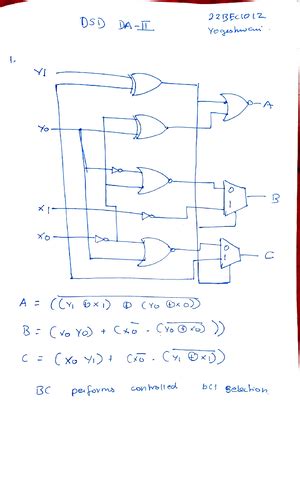 DSD DA-II
22BEC1012
Yogeshwari.
1.
Y1
Y0
X1
X0
A
0
1
B
0
1
C
A = ((Y1 ⊕ X1) ⊕ (Y0 ⊕ X0))
B = (X0 Y0) + (X0 . (Y0 ⊕ X0))
C = (X0 Y1) + (X0 . (Y1 ⊕ X1))
BC performs controlled bit selection